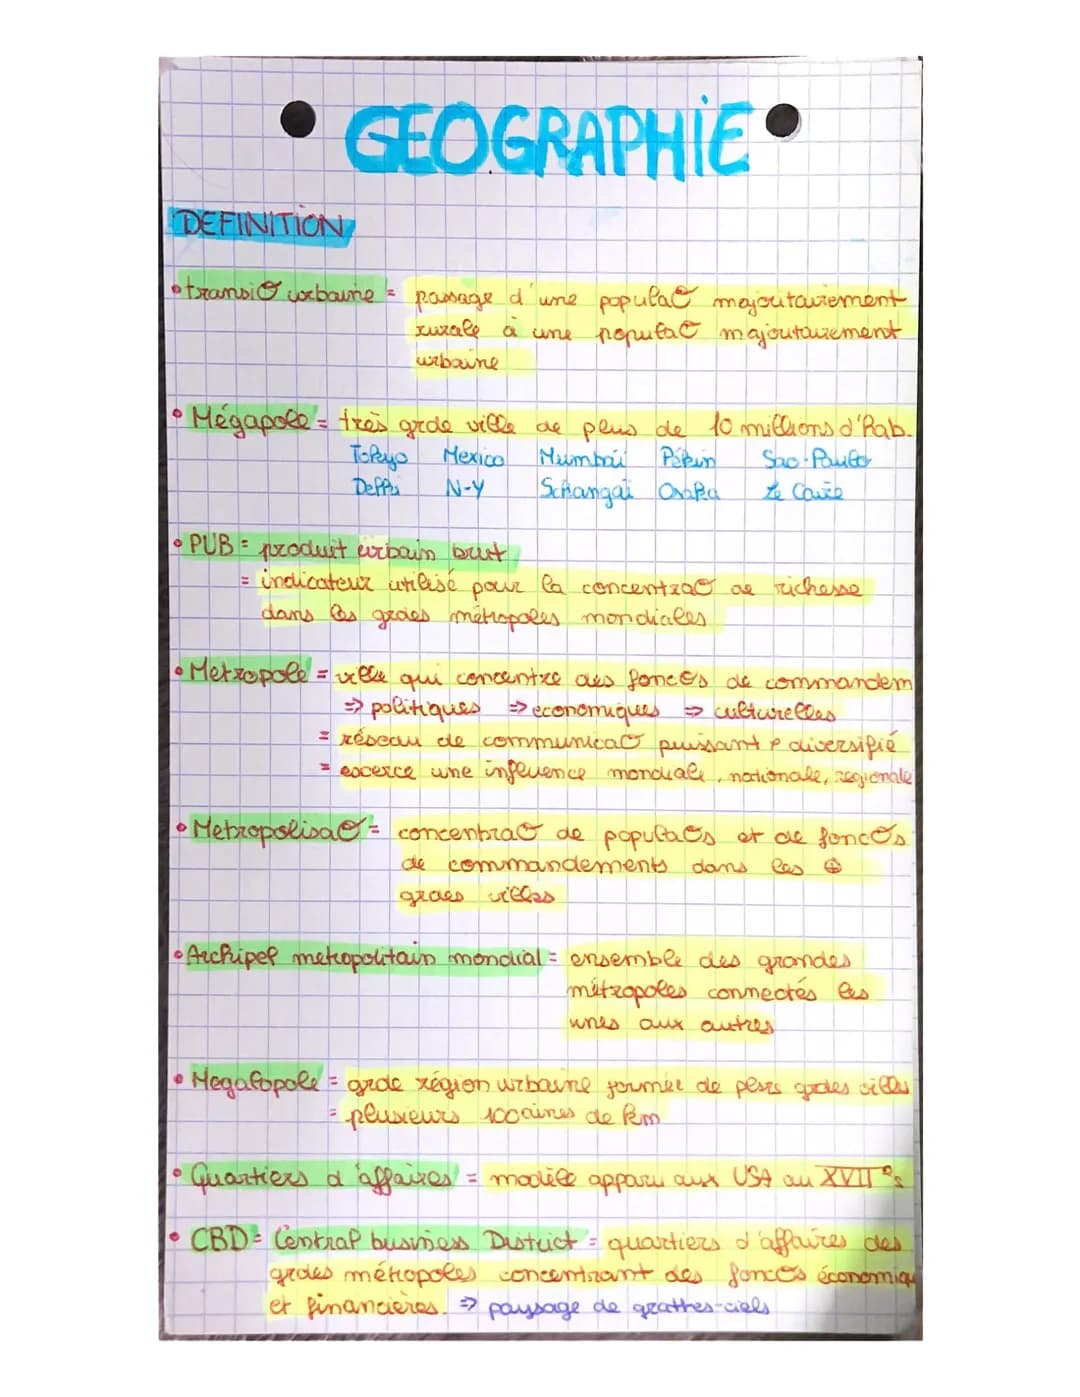 GEOGRAPHIE
DEFINITION
• transiO urbaine = passage d'une populaO majoritairement
rurale à une populaO majoritairement
urbaine
• Mégapole = très grde ville de plus de 10 millions d'hab.
Tokyo Mexico Mumbai Pékin Sao-Paulo
Delhi N-Y Schangaï Osaka Le Caire
• PUB = produit urbain brut
= indicateur utilisé pour la concentraO de richesse
dans les grdes métropoles mondiales
• Metropole = ville qui concentre des foncOs de commandem
⇒ politiques ⇒ economiques ⇒ culturelles
= réseau de communicaO puissant & diversifié
= excerce une influence mondiale, nationale, regionale
• MetropolisaO = concentraO de populaOs et de foncOs
de commandements dans les ⊕
grdes villes
• Archipel metropolitain mondial = ensemble des grandes
métropoles connectés les
unes aux autres
• Megalopole = grde région urbaine formée de plsrs grdes villes
= plusieurs 100aines de km
• Quartiers d'affaires = modèle apparu aux USA au XVII e s
• CBD = Central business District = quartiers d'affaires des
grdes métropoles concentrant des foncOs économiqu
et financières. ⇒ paysage de grattes-ciels